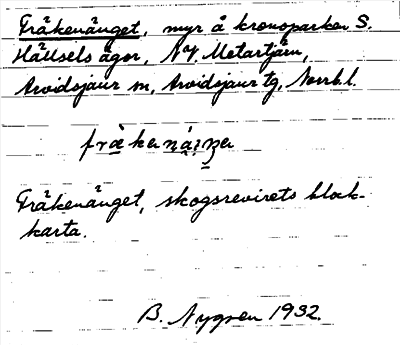 Fräkenänget, myr å kronoparken S.
Hällsels ägor, NV. Metartjärn,
Arvidsjaur sn, Arvidsjaur tg, Norrb l.
Fräkenänget, skogsrevirets blak-
karta.
B. Nygren 1932.